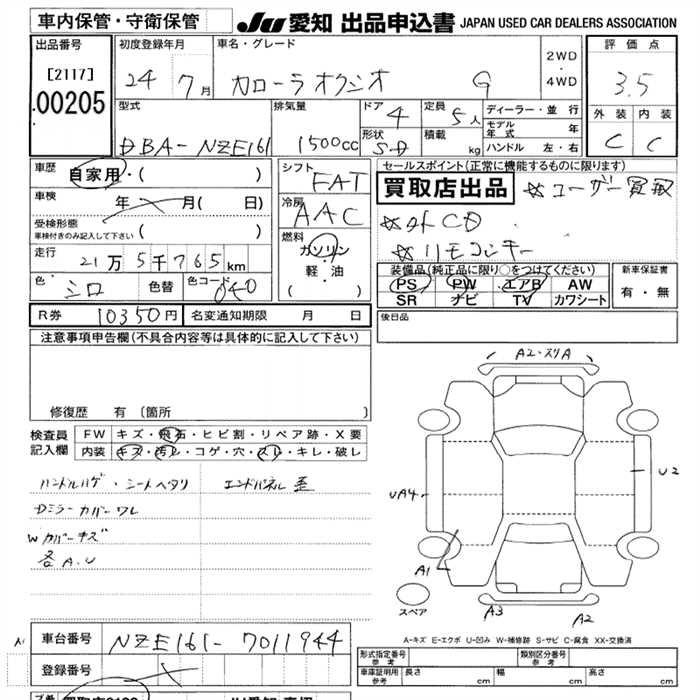 車内保管・守衛保管
JU 愛知 出品申込書 JAPAN USED CAR DEALERS ASSOCIATION
出品番号
[2117]
00205
初度登録年月
24 7月
車名・グレード
カローラアクシオ G
2WD
・
4WD
評価点
3.5
外装 内装
C C
型式
DBA-NZE161
排気量
1500cc
ドア
4
形状
S-D
定員
5人
積載 kg
ディーラー・並行
モデル年式 年
ハンドル 左・右
車歴
自家用・( )
車検
年 月( 日)
受検形態
車検付きのみ記入して下さい ( )
走行
21万5千765km
色
シロ
色替
色コード
040
シフト
FAT
冷房
AAC
燃料
ガソリン
・
軽・油
( )
セールスポイント(正常に機能するものに限ります)
買取店出品 ☆ユーザー買取
☆外CD
☆リモコンキー
装備品(純正品に限り○をつけてください)
PS PW エアB AW
SR ナビ TV カワシート
新車保証書
有・無
R券 10350円 名変通知期限 月 日
後日品
注意事項申告欄(不具合内容等は具体的に記入して下さい)
修復歴 有 (箇所 )
検査員
記入欄
FW キズ・飛石・ヒビ割・リペア跡・X要
内装 キズ・汚レ・コゲ・穴・スレ・キレ・破レ
ハンドルハゲ・シートヘタリ エンドパネル歪
Dミラーカバーワレ
Wカバーキズ
各A.U
A2・スリA
U2
UA4
A1
A3
A2
スペア
A-キズ E-エクボ U-凹み W-補修跡 S-サビ C-腐食 XX-交換済
車台番号 NZE161-7011944
登録番号
形式指定番号
参考
類別区分番号
参考
車庫証明用
参考
長さ cm 幅 cm 高さ cm